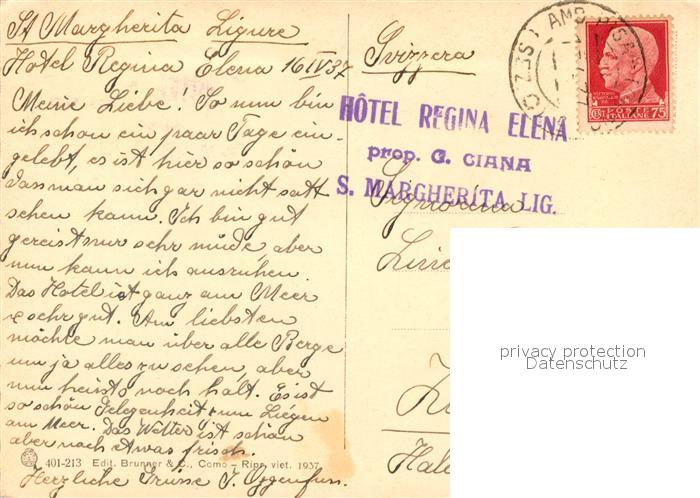 St Margherita Ligure
Hotel Regina Elena 16 IV 37
Meine Liebe! So nun bin
ich schon ein paar Tage ein-
gelebt, es ist hier so schön
dass man sich gar nicht satt
sehen kann. Ich bin gut
gereist nur sehr müde, aber
nun kann ich ausruhen.
Das Hotel ist ganz am Meer
& sehr gut. Am liebsten
möchte man über alle Berge
um ja alles zu sehen, aber
nun heissts noch halt. Es ist
so schön Gelegenheit zum Liegen
am Meer. Das Wetter ist schön
aber noch etwas frisch.
401-213 Edit. Brunner & C., Como - Ripr. viet. 1937
Herzliche Grüsse J. Oggenfuss.
Svizzera
HÔTEL REGINA ELENA
prop. G. CIANA
S. MARGHERITA LIG.
Signorina
POSTE
ITALIANE
75
privacy protection
Datenschutz